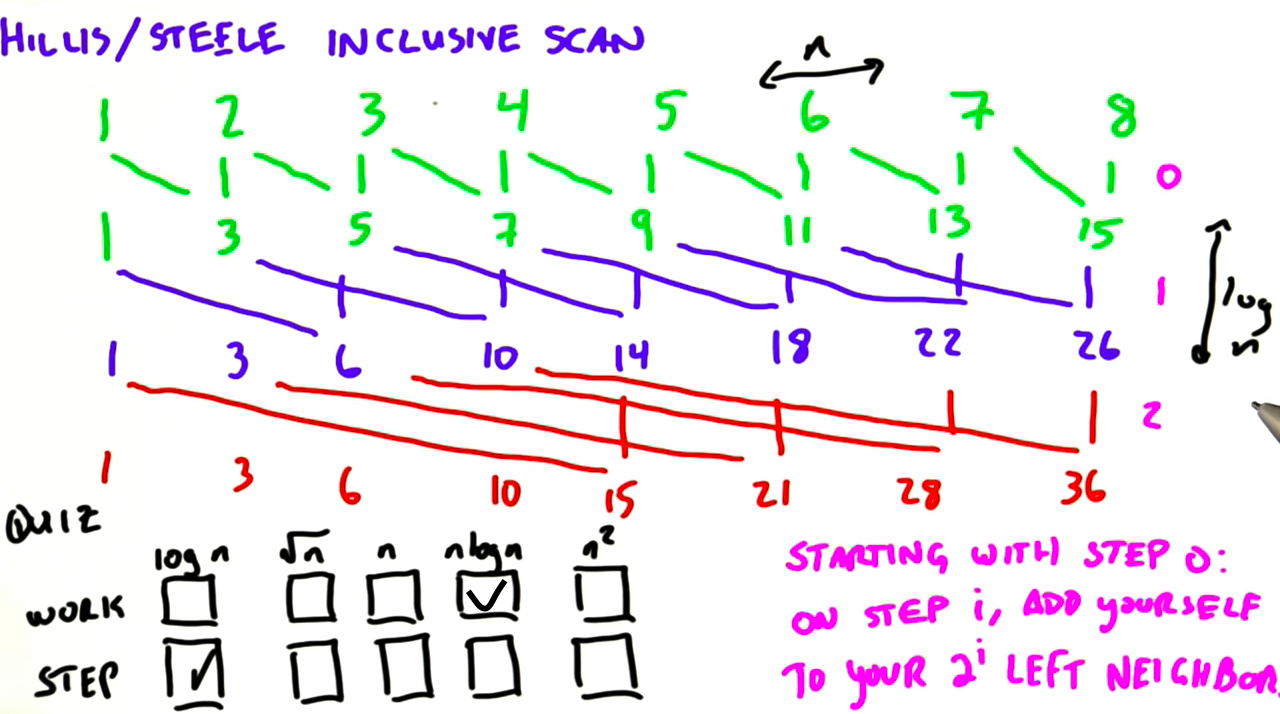 HILLIS/STEELE INCLUSIVE SCAN
n
1 2 3 4 5 6 7 8
0
1 3 5 7 9 11 13 15
1
log n
1 3 6 10 14 18 22 26
2
1 3 6 10 15 21 28 36
QUIZ
log n √n n n log n n²
WORK
STEP
STARTING WITH STEP 0:
ON STEP i, ADD YOURSELF
TO YOUR 2^i LEFT NEIGHBOR.